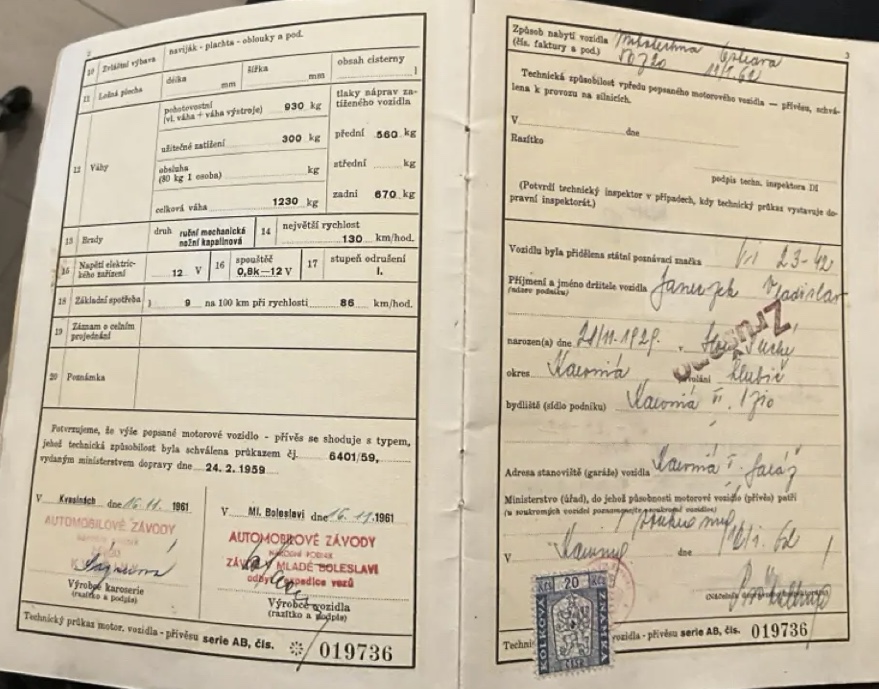 2
10 Zvláštní výbava naviják - plachta - oblouky a pod.
11 Ložná plocha délka mm šířka mm obsah cisterny l
12 Váhy
pohotovostní (vl. váha + váha výstroje) 930 kg
užitečné zatížení 300 kg
obsluha (80 kg 1 osoba) kg
celková váha 1230 kg
tlaky náprav zatíženého vozidla
přední 560 kg
střední kg
zadní 670 kg
13 Brzdy druh ruční mechanická nožní kapalinová
14 největší rychlost 130 km/hod.
15 Napětí elektrického zařízení 12 V
16 spouštěč 0,8k—12 V
17 stupeň odrušení I.
18 Základní spotřeba 9 na 100 km při rychlosti 86 km/hod.
19 Záznam o celním projednání
20 Poznámka
Potvrzujeme, že výše popsané motorové vozidlo - přívěs se shoduje s typem,
jehož technická způsobilost byla schválena průkazem čj. 6401/59,
vydaným ministerstvem dopravy dne 24. 2. 1959
V Kvasinách dne 16. 11. 1961
AUTOMOBILOVÉ ZÁVODY
Výrobce karoserie
(razítko a podpis)
V Ml. Boleslavi dne 16. 11. 1961
AUTOMOBILOVÉ ZÁVODY
NÁRODNÍ PODNIK
MLADÉ BOLESLAVI
odbyt expedice vozů
Výrobce vozidla
(razítko a podpis)
Technický průkaz motor. vozidla - přívěsu serie AB, čís. 019736
3
Způsob nabytí vozidla
(čís. faktury a pod.)
Technická způsobilost vpředu popsaného motorového vozidla — přívěsu, schvá-
lena k provozu na silnicích.
V dne
Razítko
podpis techn. inspektora DI
(Potvrdí technický inspektor v případech, kdy technický průkaz vystavuje do-
pravní inspektorát.)
Vozidlu byla přidělena státní poznávací značka 23-42
Příjmení a jméno držitele vozidla Vladislav
(název podniku)
narozen(a) dne 28/11. 1929. v Suchý
ZRUŠENO
okres Karviná
bydliště (sídlo podniku) Karviná
Adresa stanoviště (garáže) vozidla Karviná
Ministerstvo (úřad), do jehož působnosti motorové vozidlo (přívěs) patří
(u soukromých vozidel poznamenejte soukromé vozidlo)
V dne 62
KOLKOVÁ ZNÁMKA
Kčs 20 Kčs
ČSSR
Techni vozidla - přívěsu serie AB, čís. 019736